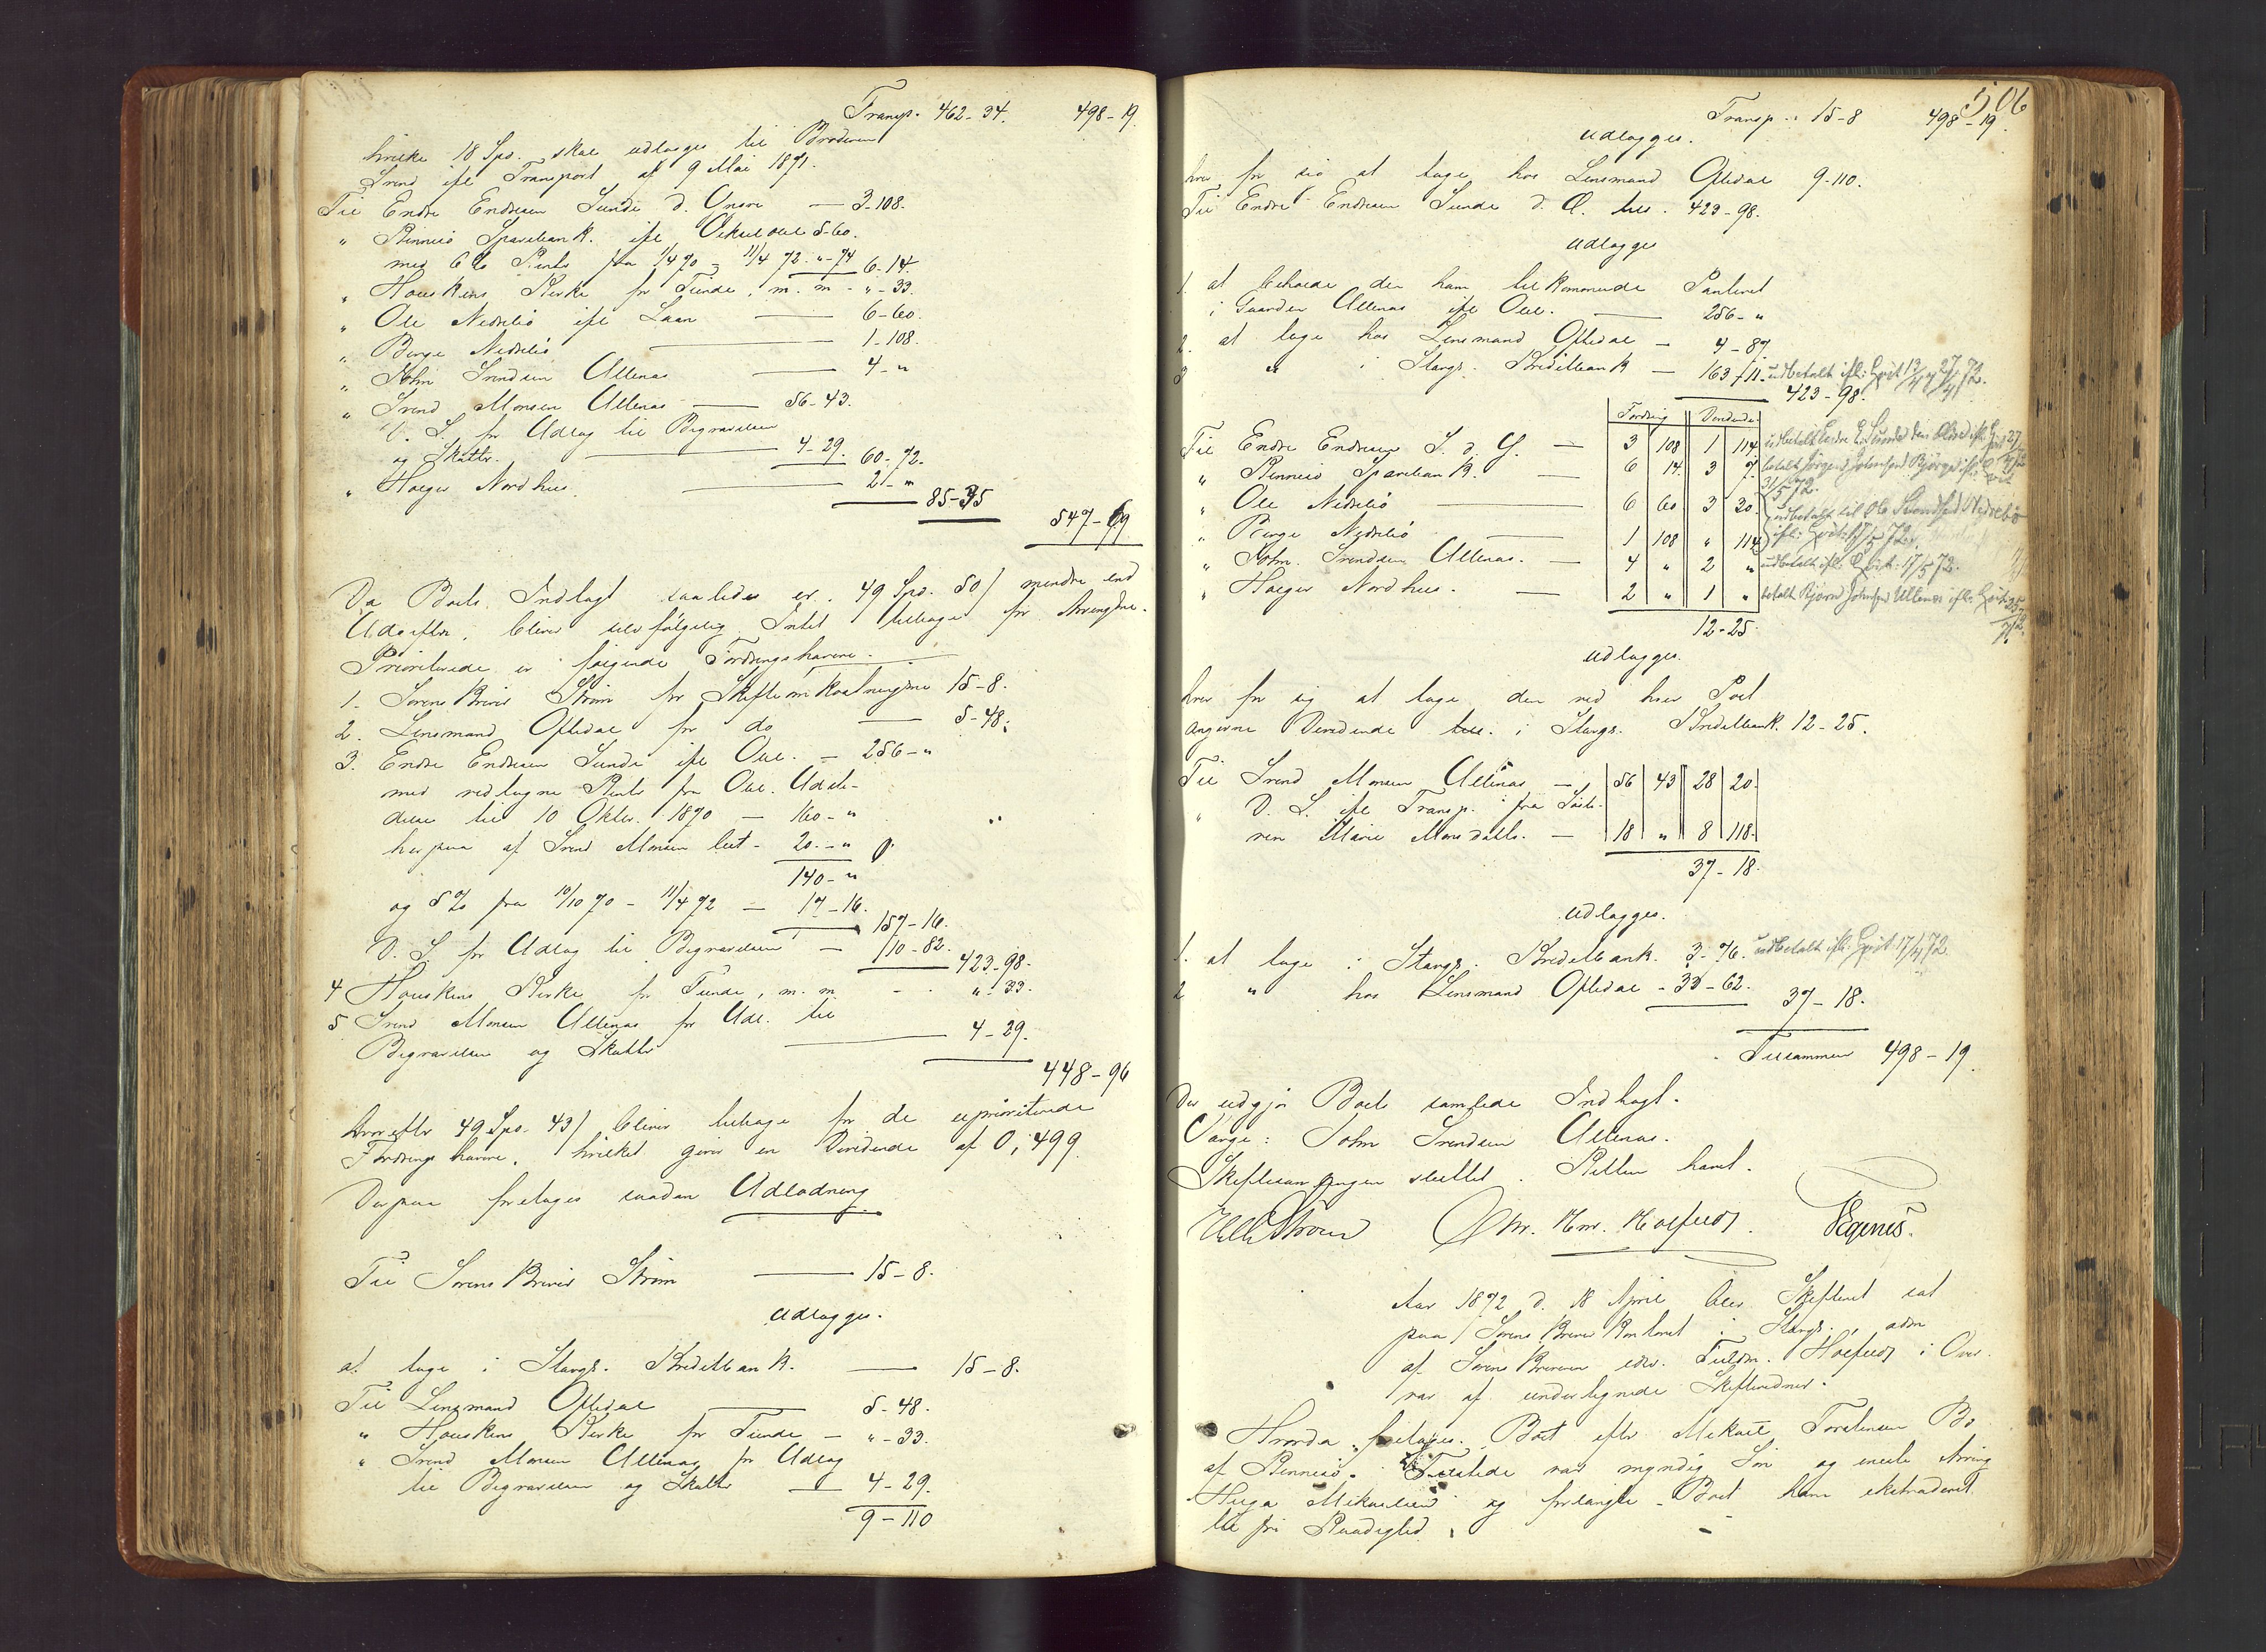 Transp. 462-34. 498-19
hvilke 18 Spd. skal udlægges til Broderen
Svend ifl Transport af 9 Mai 1871.
Til Endre Endresen Sunde d. Yngre — 3-108.
" Rennesø Sparebank ifl 5-60.
med 6 % Rente fra 1/4 70 - 11/4 72 "-74 6-14.
" Houskens Kirke for Tiende, m. m - "-33.
" Ole Nedrebø ifl Laan — 6-60.
" Børge Nedrebø — 1-108.
" John Svendsen Ullenæs — 4-"
" Svend Monsen Ullenæs — 56-43.
D. S. for Udlæg til Begravelsen
og Skatter. — 4-29. 60-72.
" Holger Nordhus — 2-"
85-35
547-69
Da Boets Indtægt saaledes er 49 Spd. 50 / mindre end
Udgiften, bliver selvfølgelig Intet tilbage for Arvingerne.
Prioriterede er følgende Fordringshavere.
1. Sorenskriver Strøm for Skifteomkostningerne 15-8.
2. Lensmand Oftedal for do — 5-48.
3. Endre Endresen Sunde ifl Obl. — 256-"
med vedtagne Rente fra Obl. Udste-
delse til 10 Oktbr. 1870 — 160-"
herpaa af Svend Monsen bet. 20-"
140-"
og 5 % fra 10/10 70 - 11/4 72 — 17-16.
157-16.
D. S. for Udlæg til Begravelsen — 10-82.
423-98.
4 Houskens Kirke for Tiende, m. m. - - "-33.
5 Svend Monsen Ullenæs for Udl. til
Begravelsen og Skatter — 4-29.
448-96
hvorefter 49 Spd. 43 / bliver tilbage for de uprioriterede
Fordringshavere, hvilket giver en Dividende af 0,499
Derpaa foretages saadan Udlodning
Til Sorenskriver Strøm — 15-8.
Udlægges.
at tage i Stavgr. Kreditbank. — 15-8.
Til Lensmand Oftedal — 5-48.
" Houskens Kirke for Tiende — "-33.
" Svend Monsen Ullenæs for Udlæg
til Begravelsen og Skatter — 4-29.
9-110
506
Transp.: 15-8 498-19.
Udlægges.
hver for sig at tage hos Lensmand Oftedal 9-110.
Til Endre Endresen Sunde d. Æ. 423-98.
Udlægges
1. at beholde den ham tilkommende Panteret
i Gaarden Ullenæs ifl Obl. — 256-"
2. at tage hos Lensmand Oftedal — 4-87
3 " i Stavgr. Kreditbank — 163-11. udbetalt ifl. Qvit 13/4 og 27/4 72.
423-98.
Fordring Dividende
Til Endre Endresen S. d. Y. — 3 108 1 114 udbetalt Endre E. Sunde den Ældre ifl. Qvit 27/4 72
" Rennesø Sparebank. — 6 14 3 7 betalt Jørgen Johnsen Bjørge ifl. Qvit
31/5 72.
" Ole Nedrebø — 6 60 3 30 udbetalt til Ole Svendsen Nedrebø
" Børge Nedrebø — 1 108 " 114 ifl. Qvit: 17/5 72.
" John Svendsen Ullenæs. — 4 " 2 " udbetalt ifl. Qvit. 17/5 72.
" Holger Nordhus. — 2 " 1 " betalt Bjørn Johnsen Ullenæs ifl. Qvit 25/7 72.
12-25
Udlægges.
hver for sig at tage den ved hver Post
angivne Dividende i Stavgr. Kreditbank. 12-25.
Til Svend Monsen Ullenæs — 56 43 28 20
" D. S. ifl Transp. fra Søste-
ren Marie Monsdatter. — 18 " 8 118
37-18.
Udlægges.
1. at tage i Stavgr. Kreditbank. 3-76. udbetalt ifl. Qvit 17/4 72.
2 " hos Lensmand Oftedal - 33-62. 37-18.
Tilsammen 498-19
Der udgjør Boets samlede Indtægt.
Værge: John Svendsen Ullenæs.
Skiftesamlingen sluttet. Retten hævet.
Strøm Chr. Hmr. Holfeldt. Vegenes.
Aar 1872 d. 18 April blev Skifteret sat
paa Sorenskriverkontoret i Stavgr., adm
af Sorenskriveren edsv. Fuldm. Holfeldt i Over-
vær af undertegnede Skiftevidner.
Hvorda foretages Boet efter Mikael Torstensen Bø
af Rennesø. Tilstede var myndig Søn og eneste Arving
Mikaelsen og forlangte Boet ham extraderet
til fri Raadighed.